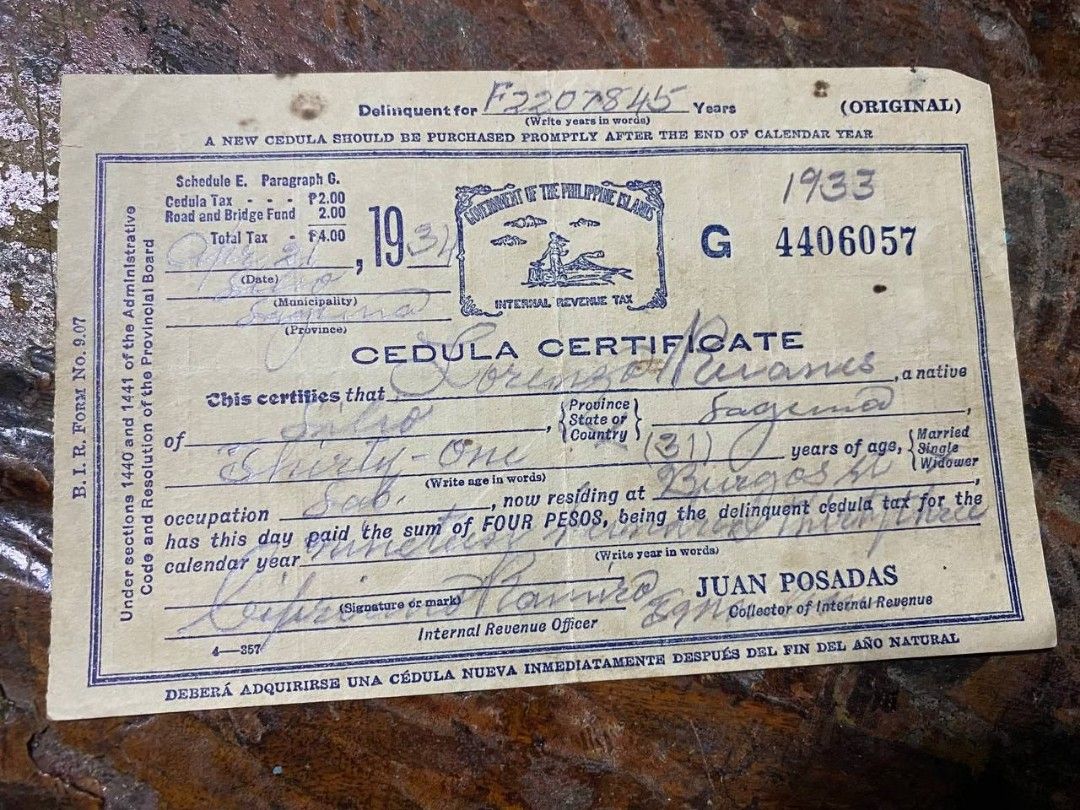 Delinquent for F2207845 Years
(Write years in words)
(ORIGINAL)
A NEW CEDULA SHOULD BE PURCHASED PROMPTLY AFTER THE END OF CALENDAR YEAR
B. I. R. FORM No. 9.07
Under sections 1440 and 1441 of the Administrative
Code and Resolution of the Provincial Board
Schedule E. Paragraph G.
Cedula Tax - - - ₱2.00
Road and Bridge Fund 2.00
Total Tax - ₱4.00
Apr. 21, 1934
(Date)
(Municipality)
(Province)
GOVERNMENT OF THE PHILIPPINE ISLANDS
INTERNAL REVENUE TAX
1933
G 4406057
CEDULA CERTIFICATE
This certifies that Lorenzo, a native
of, {Province State or Country}
Thirty-One (31) years of age, {Married Single Widower
(Write age in words)
occupation Lab., now residing at Burgos St,
has this day paid the sum of FOUR PESOS, being the delinquent cedula tax for the
calendar year nineteen hundred thirty three
(Write year in words)
(Signature or mark)
Cipriano Ramiro
Internal Revenue Officer
JUAN POSADAS
Collector of Internal Revenue
4—357
DEBERÁ ADQUIRIRSE UNA CÉDULA NUEVA INMEDIATAMENTE DESPUÉS DEL FIN DEL AÑO NATURAL